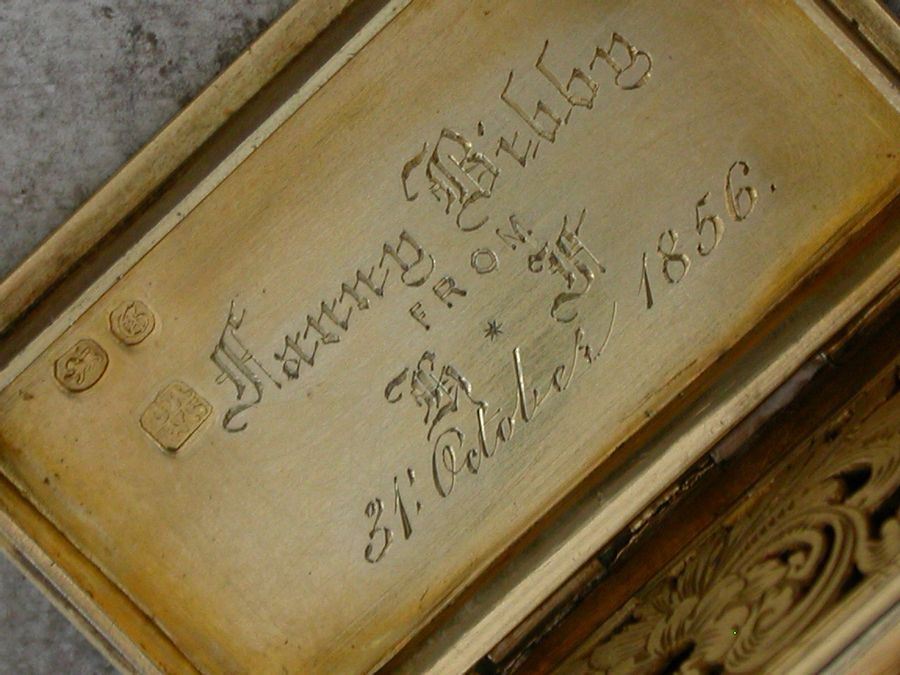 Fanny Bibby
FROM
H * F
31st October 1856.